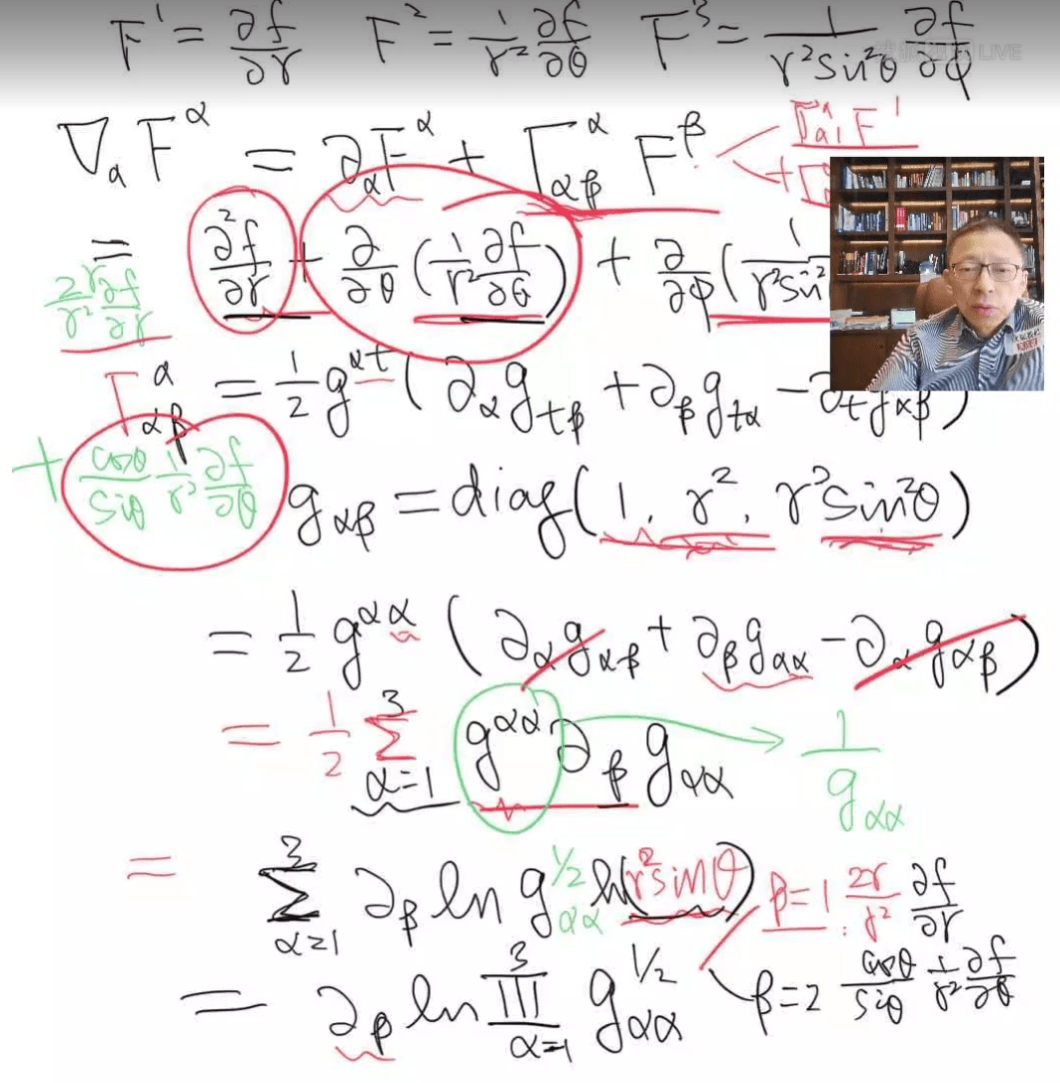 F¹ = ∂f/∂r F² = 1/r² ∂f/∂θ F³ = 1/(r²sin²θ) ∂f/∂φ
LIVE
∇_α F^α = ∂_α F^α + Γ^α_{αβ} F^β
= ∂²f/∂r + ∂/∂θ (1/r² ∂f/∂θ) + ∂/∂φ (1/r²sin²
2r/r² ∂f/∂r
Γ^α_{αβ} = 1/2 g^{αt} (∂_α g_{tβ} + ∂_β g_{tα} − ∂_t g_{αβ})
+ cosθ/sinθ 1/r² ∂f/∂θ
g_{αβ} = diag(1, r², r²sin²θ)
= 1/2 g^{αα} (∂_α g_{αβ} + ∂_β g_{αα} − ∂_α g_{αβ})
= 1/2 Σ_{α=1}^{3} g^{αα} ∂_β g_{αα} → 1/g_{αα}
= Σ_{α=1}^{3} ∂_β ln g_{αα}^{1/2} ln(r²sinθ) β=1: 2r/r² ∂f/∂r
= ∂_β ln ∏_{α=1}^{3} g_{αα}^{1/2} β=2 cosθ/sinθ 1/r² ∂f/∂θ